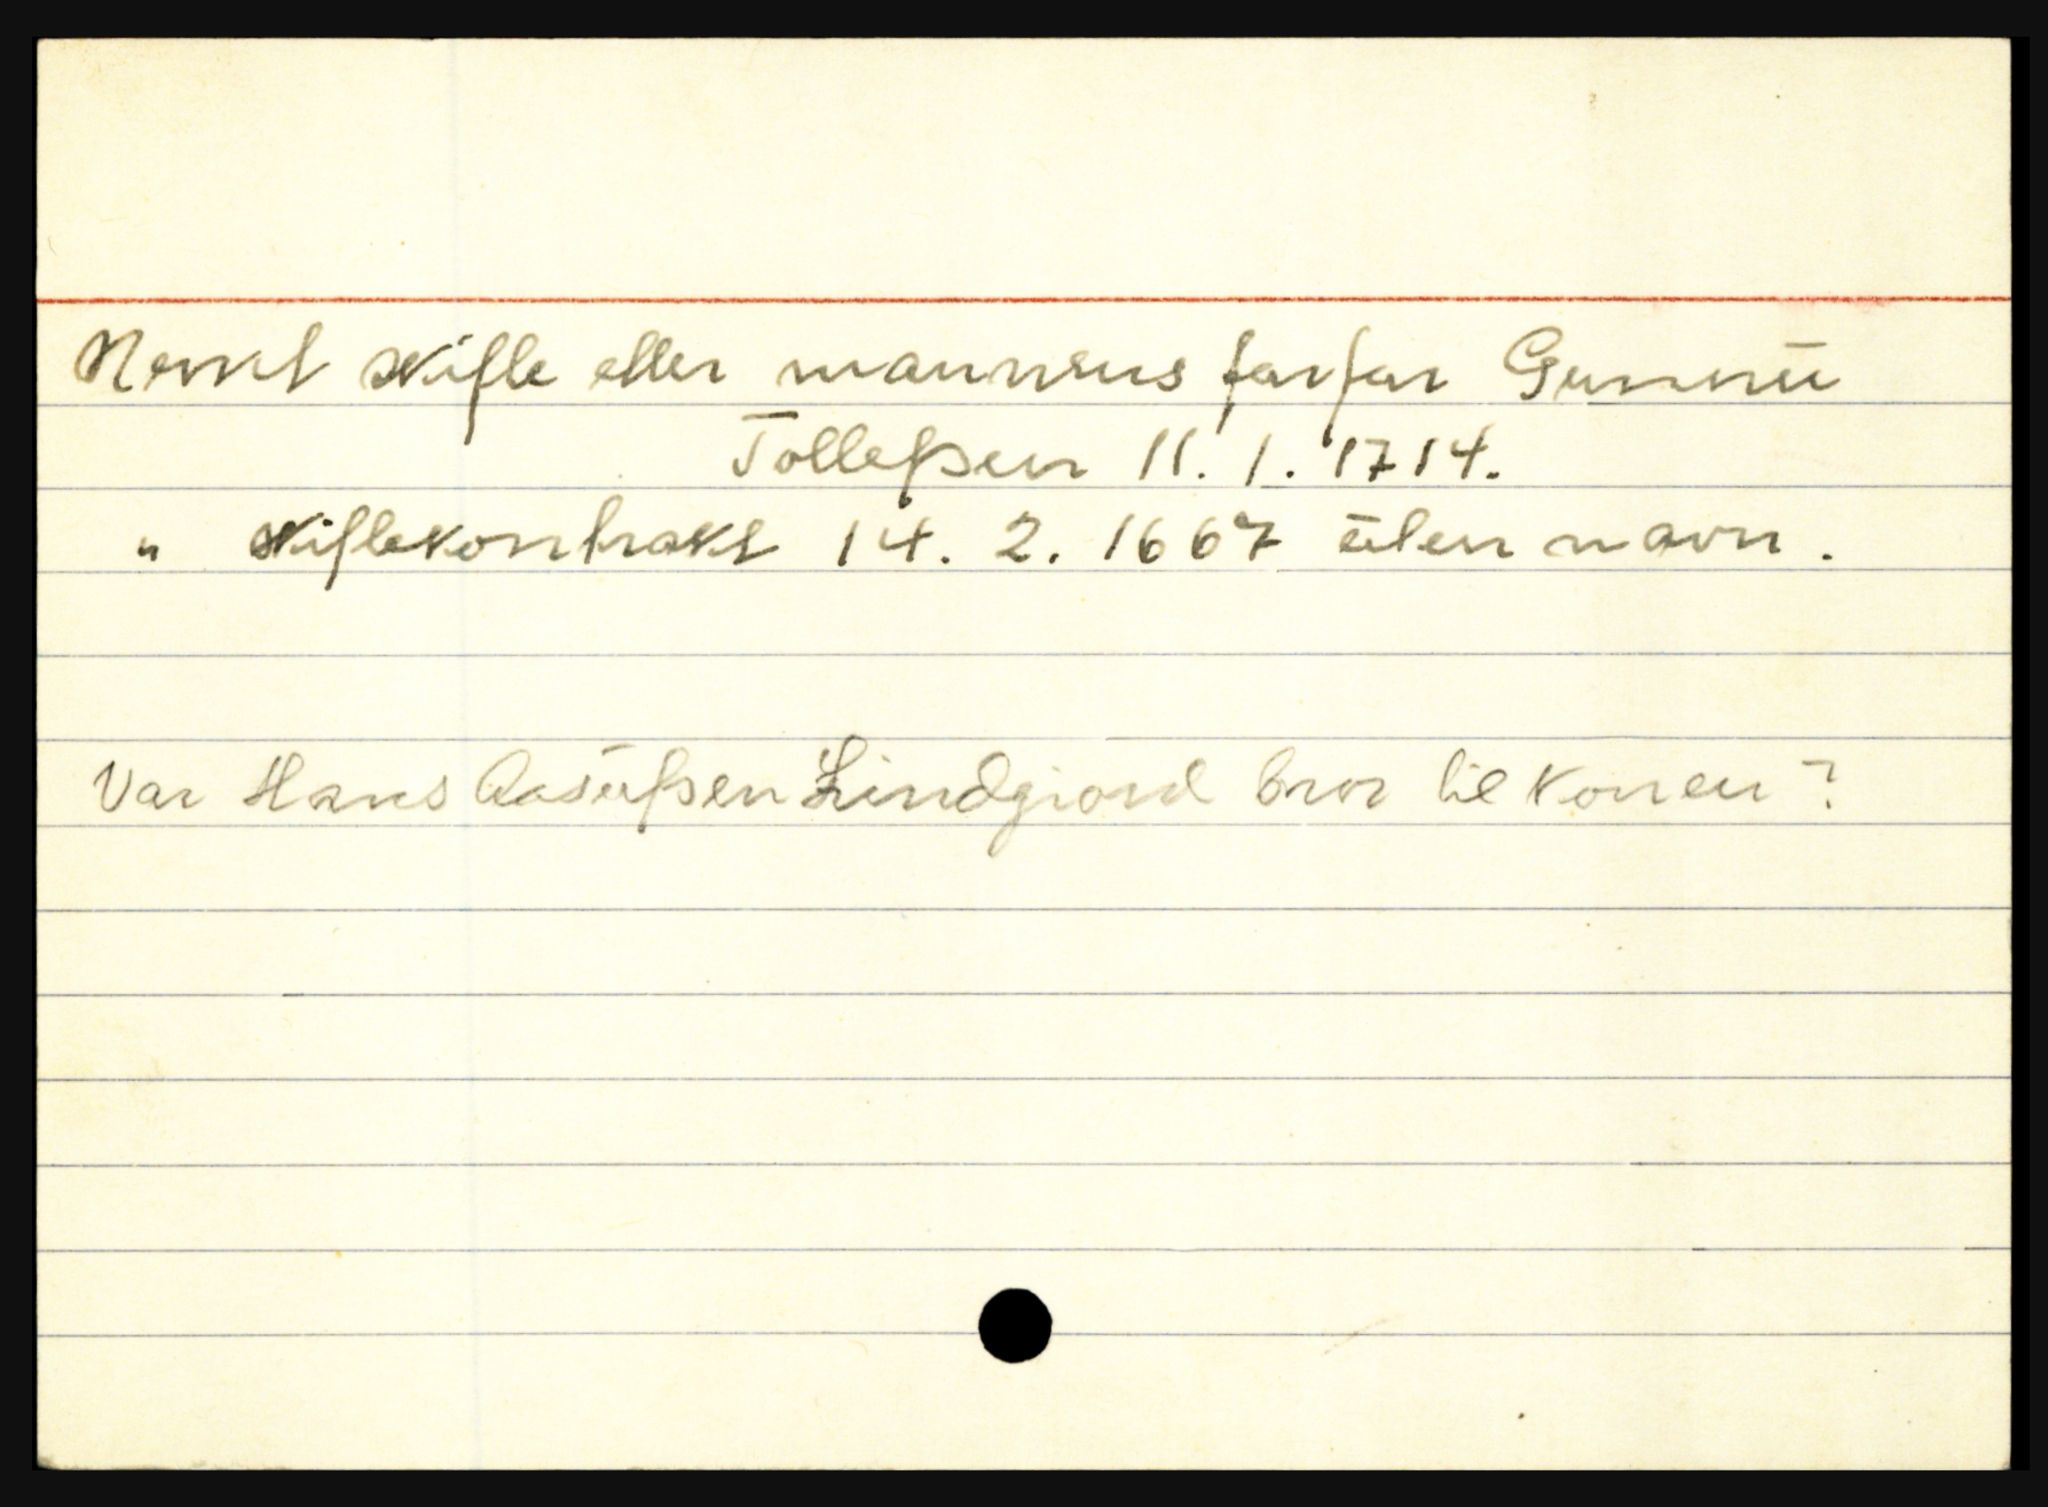 Nevnt skifte etter mannens farfar Gunnu
Tollefsen 11. 1. 1714.
" skiftekontrakt 14. 2. 1667 uten navn.
Var Hans Aasufsen Lindgiord bror til konen?